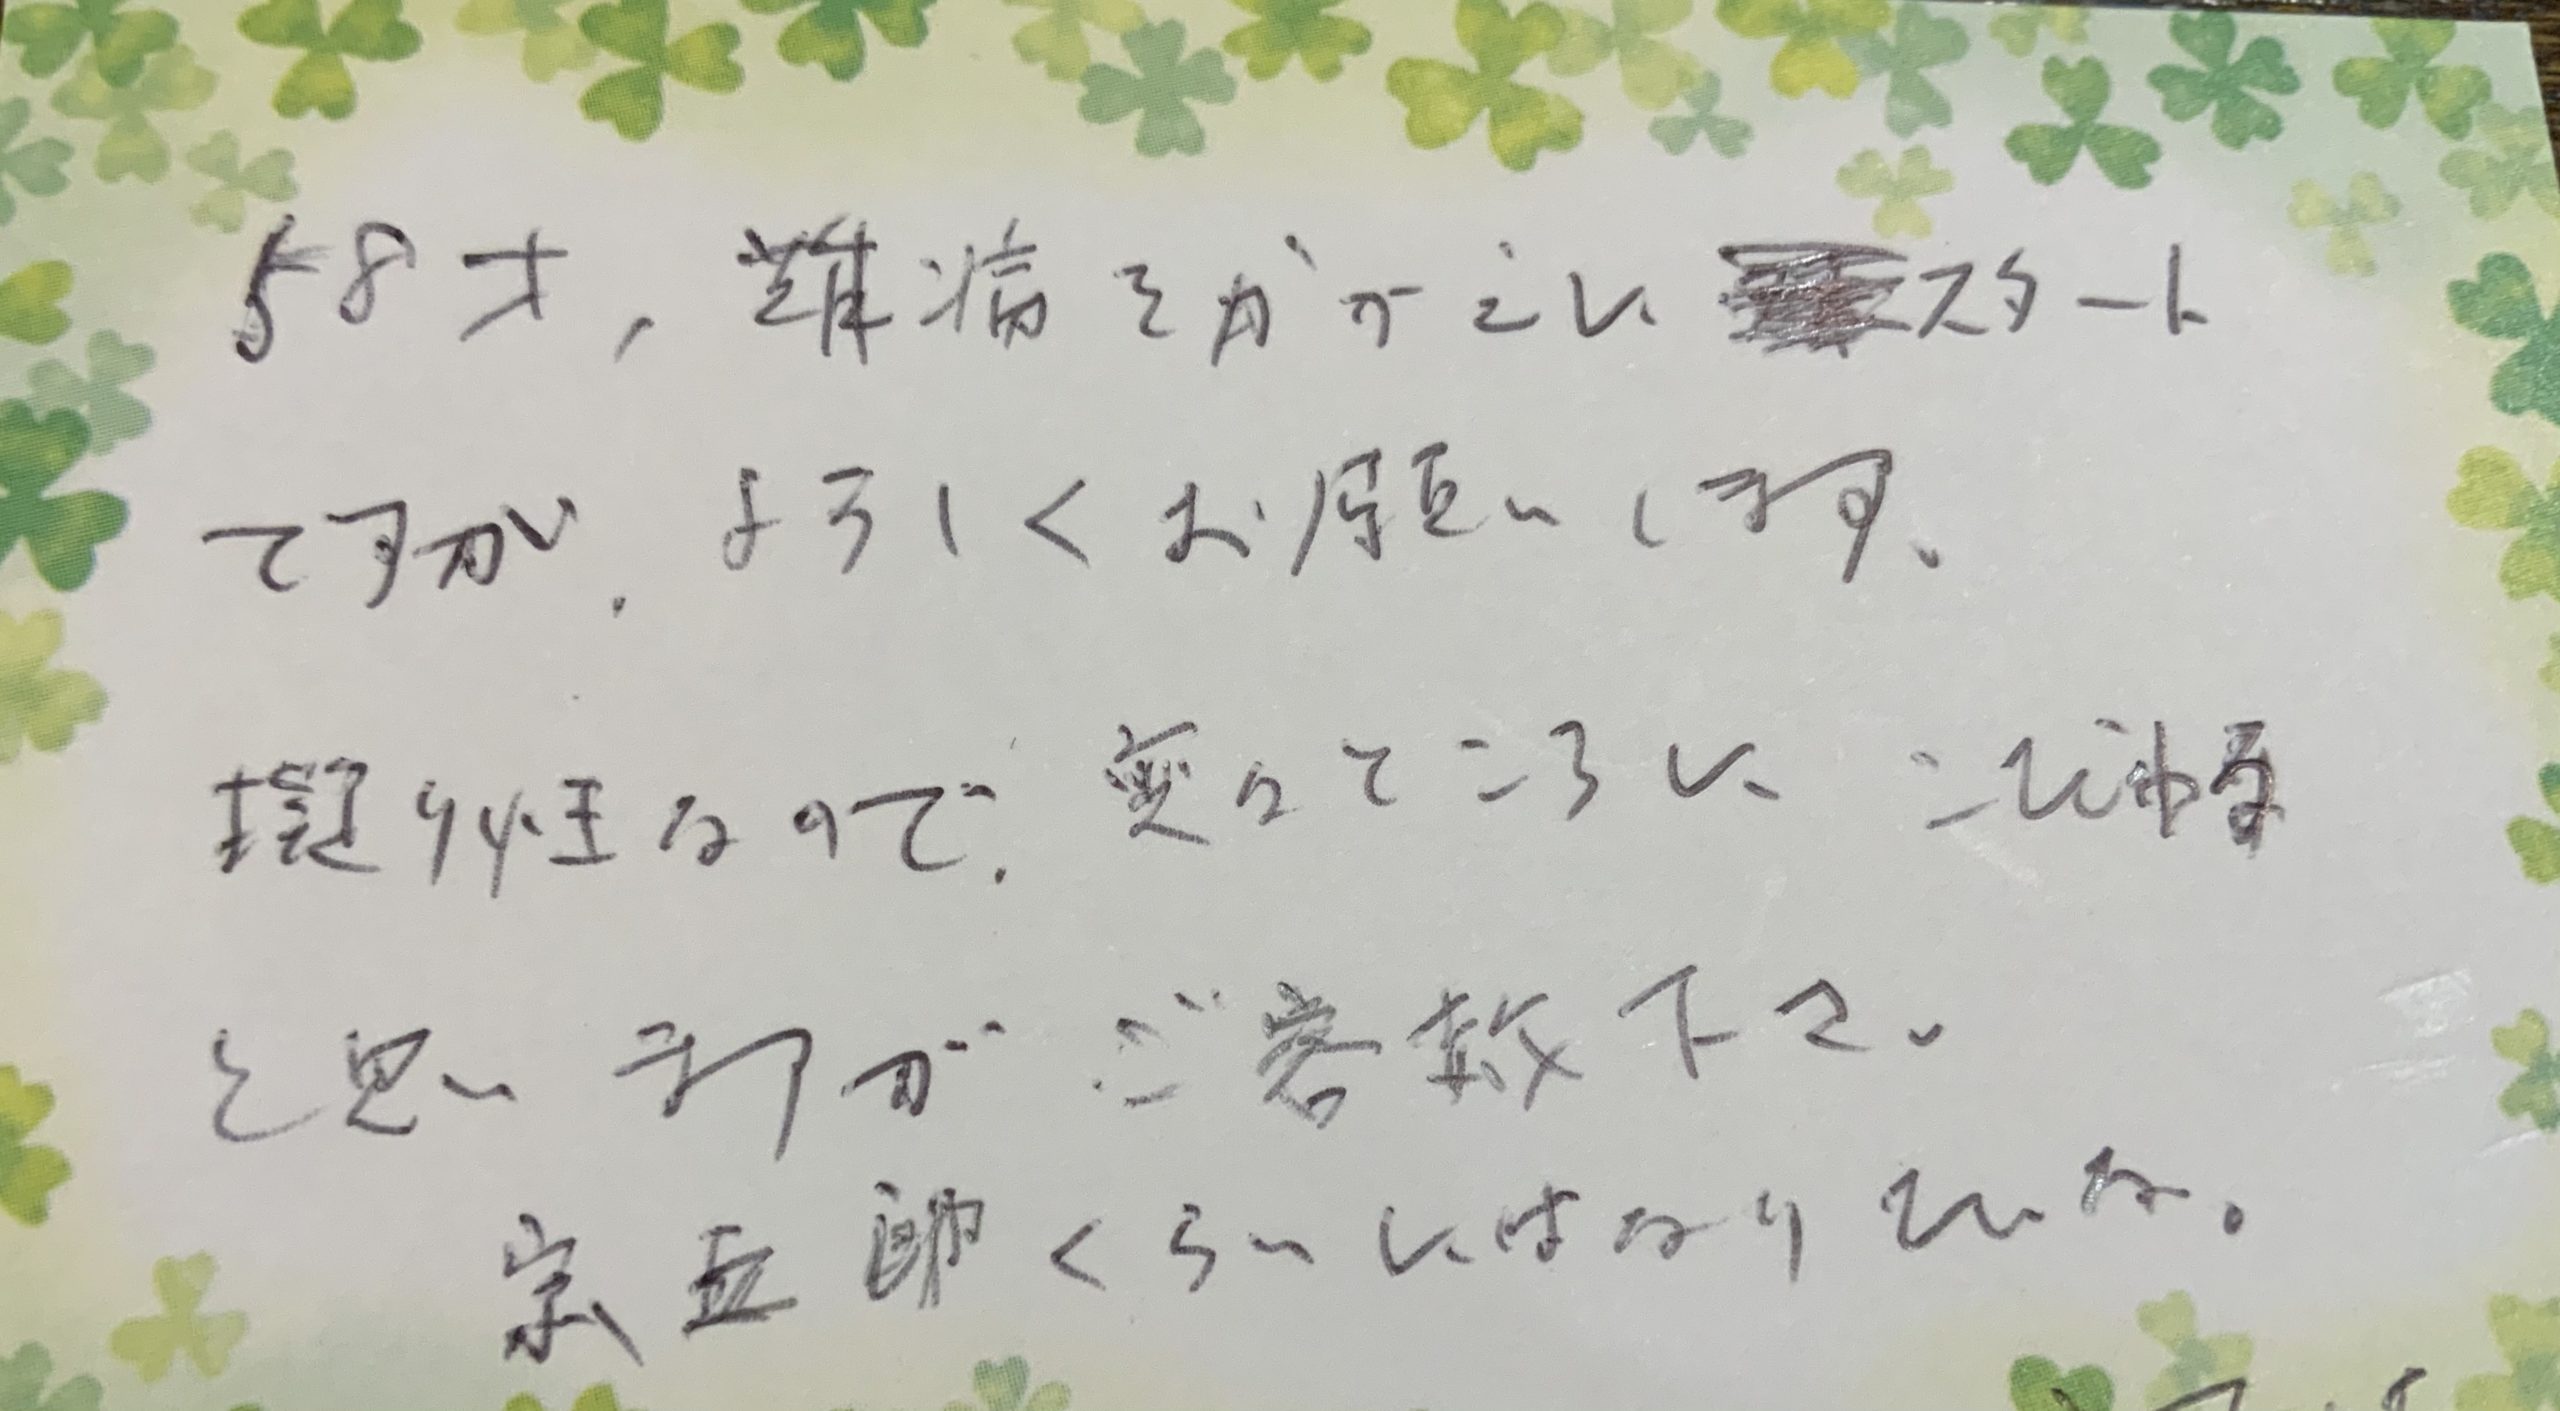 58才,難病をかかえい スタート
ですが、よろしくお願いします、
凝り性なので、変なところに こだわる
と思いますがご容赦下さい
宗五郎くらいにはなりたいな。